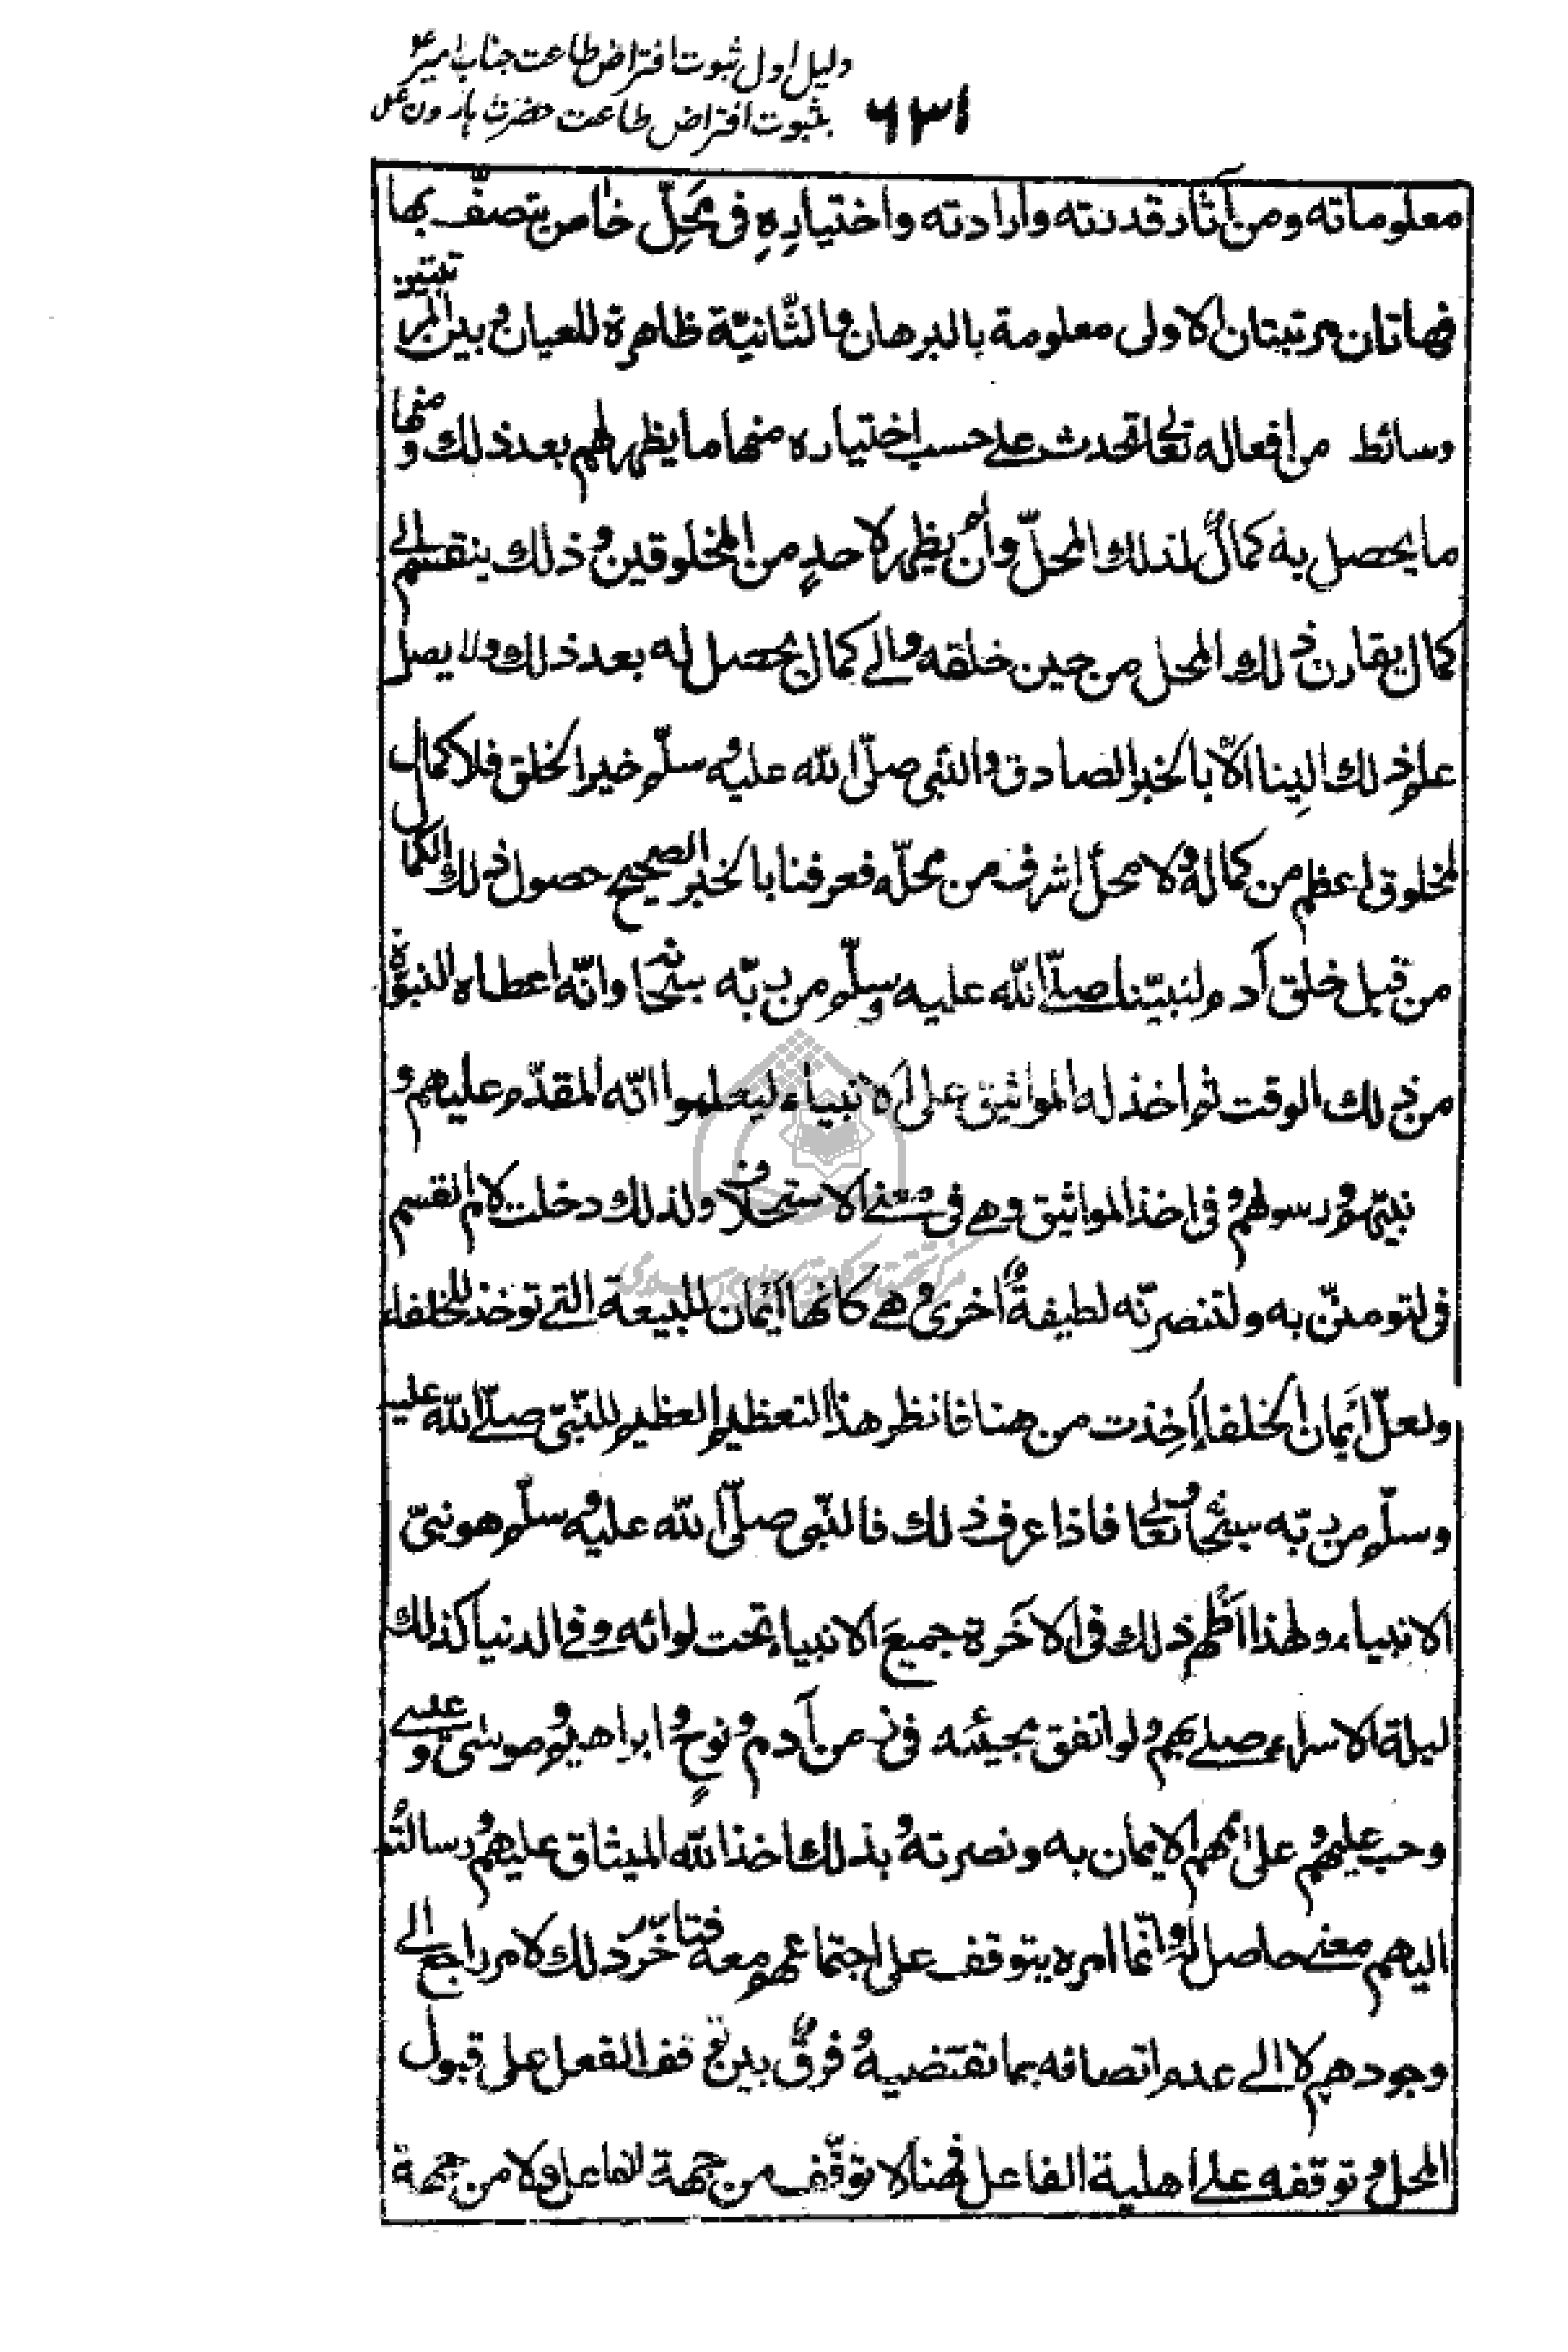 دلیل اول ثبوت افتراض طاعت جناب امیر ع
بثبوت افتراض طاعت حضرت هارون ع
۶۳۱
معلوماته ومن آثار قدرته وارادته واختيارِهِ فى مَحِلّ خاص يتصف بها
فهاتان مرتبتان الاولى معلومة بالبرهان والثّانيّة ظاهرة للعيان وبين المرتبتين
وسائط من افعاله تعالى تحدث على حسب اختياره منها ما يظهر لهم بعد ذلك ومنها
ما يحصل به كمالٌ لذلك المحلّ وان لم يظهر لاحدٍ من المخلوقين وذلك ينقسم الى
كمال يقارن ذلك المحل من حين خلقه والى كمال يحصل له بعد ذلك ولا يصل
علم ذلك الينا الّا بالخبر الصادق والنّبى صلّى الله عليه وسلّم خير الخلق فلا كمال
لمخلوق اعظم من كماله ولا محلّ اشرف من محلّه فعرفنا بالخبر الصحيح حصول ذلك الكمال
من قبل خلق آدم لنبيّنا صلّى الله عليه وسلّم من ربّه سبحانه وانّه اعطاه النبوّة
من ذلك الوقت ثم اخذ له المواثيق على الانبياء ليعلموا انّه المقدّم عليهم و
نبيّهم ورسولهم وفى اخذ المواثيق وهى فى معنى الاستحلاف ولذلك دخلت لام القسم
فى لتومننّ به ولتنصرنّه لطيفةٌ اخرى وهى كانها اَيْمان للبيعة التى توخذ للخلفاء
ولعلّ اَيمان الخلفاء اُخِذت من هنا فانظر هذا التعظيم العظيم للنّبىّ صلّى الله عليه
وسلّم من ربّه سبحانه وتعالى فاذا عرف ذلك فالنّبى صلّى الله عليه وسلّم هو نبىّ
الانبياء ولهذا اظهر ذلك فى الآخرة جميعَ الانبياء تحت لوائه وفى الدنيا كذلك
ليلة الاسراء صلى بهم ولو اتفق مجيئه فى زمن آدم ونوحٍ وابراهيم وموسىٰ وعيسى
وجب عليهم وعلى اممهم الايمان به ونصرته وبذلك اخذ الله الميثاق عليهم ورسالته
اليهم معنى حاصل له وانّما امره يتوقف على اجتماعهم معه فتاخّر ذلك لامر راجع الى
وجودهم لا الى عدم اتصافه بما تقتضيه وفرقٌ بين توقف الفعل على قبول
المحل وتوقفه على اهلية الفاعل فهنا لا توقّف من جهة الفاعل ولا من جهة